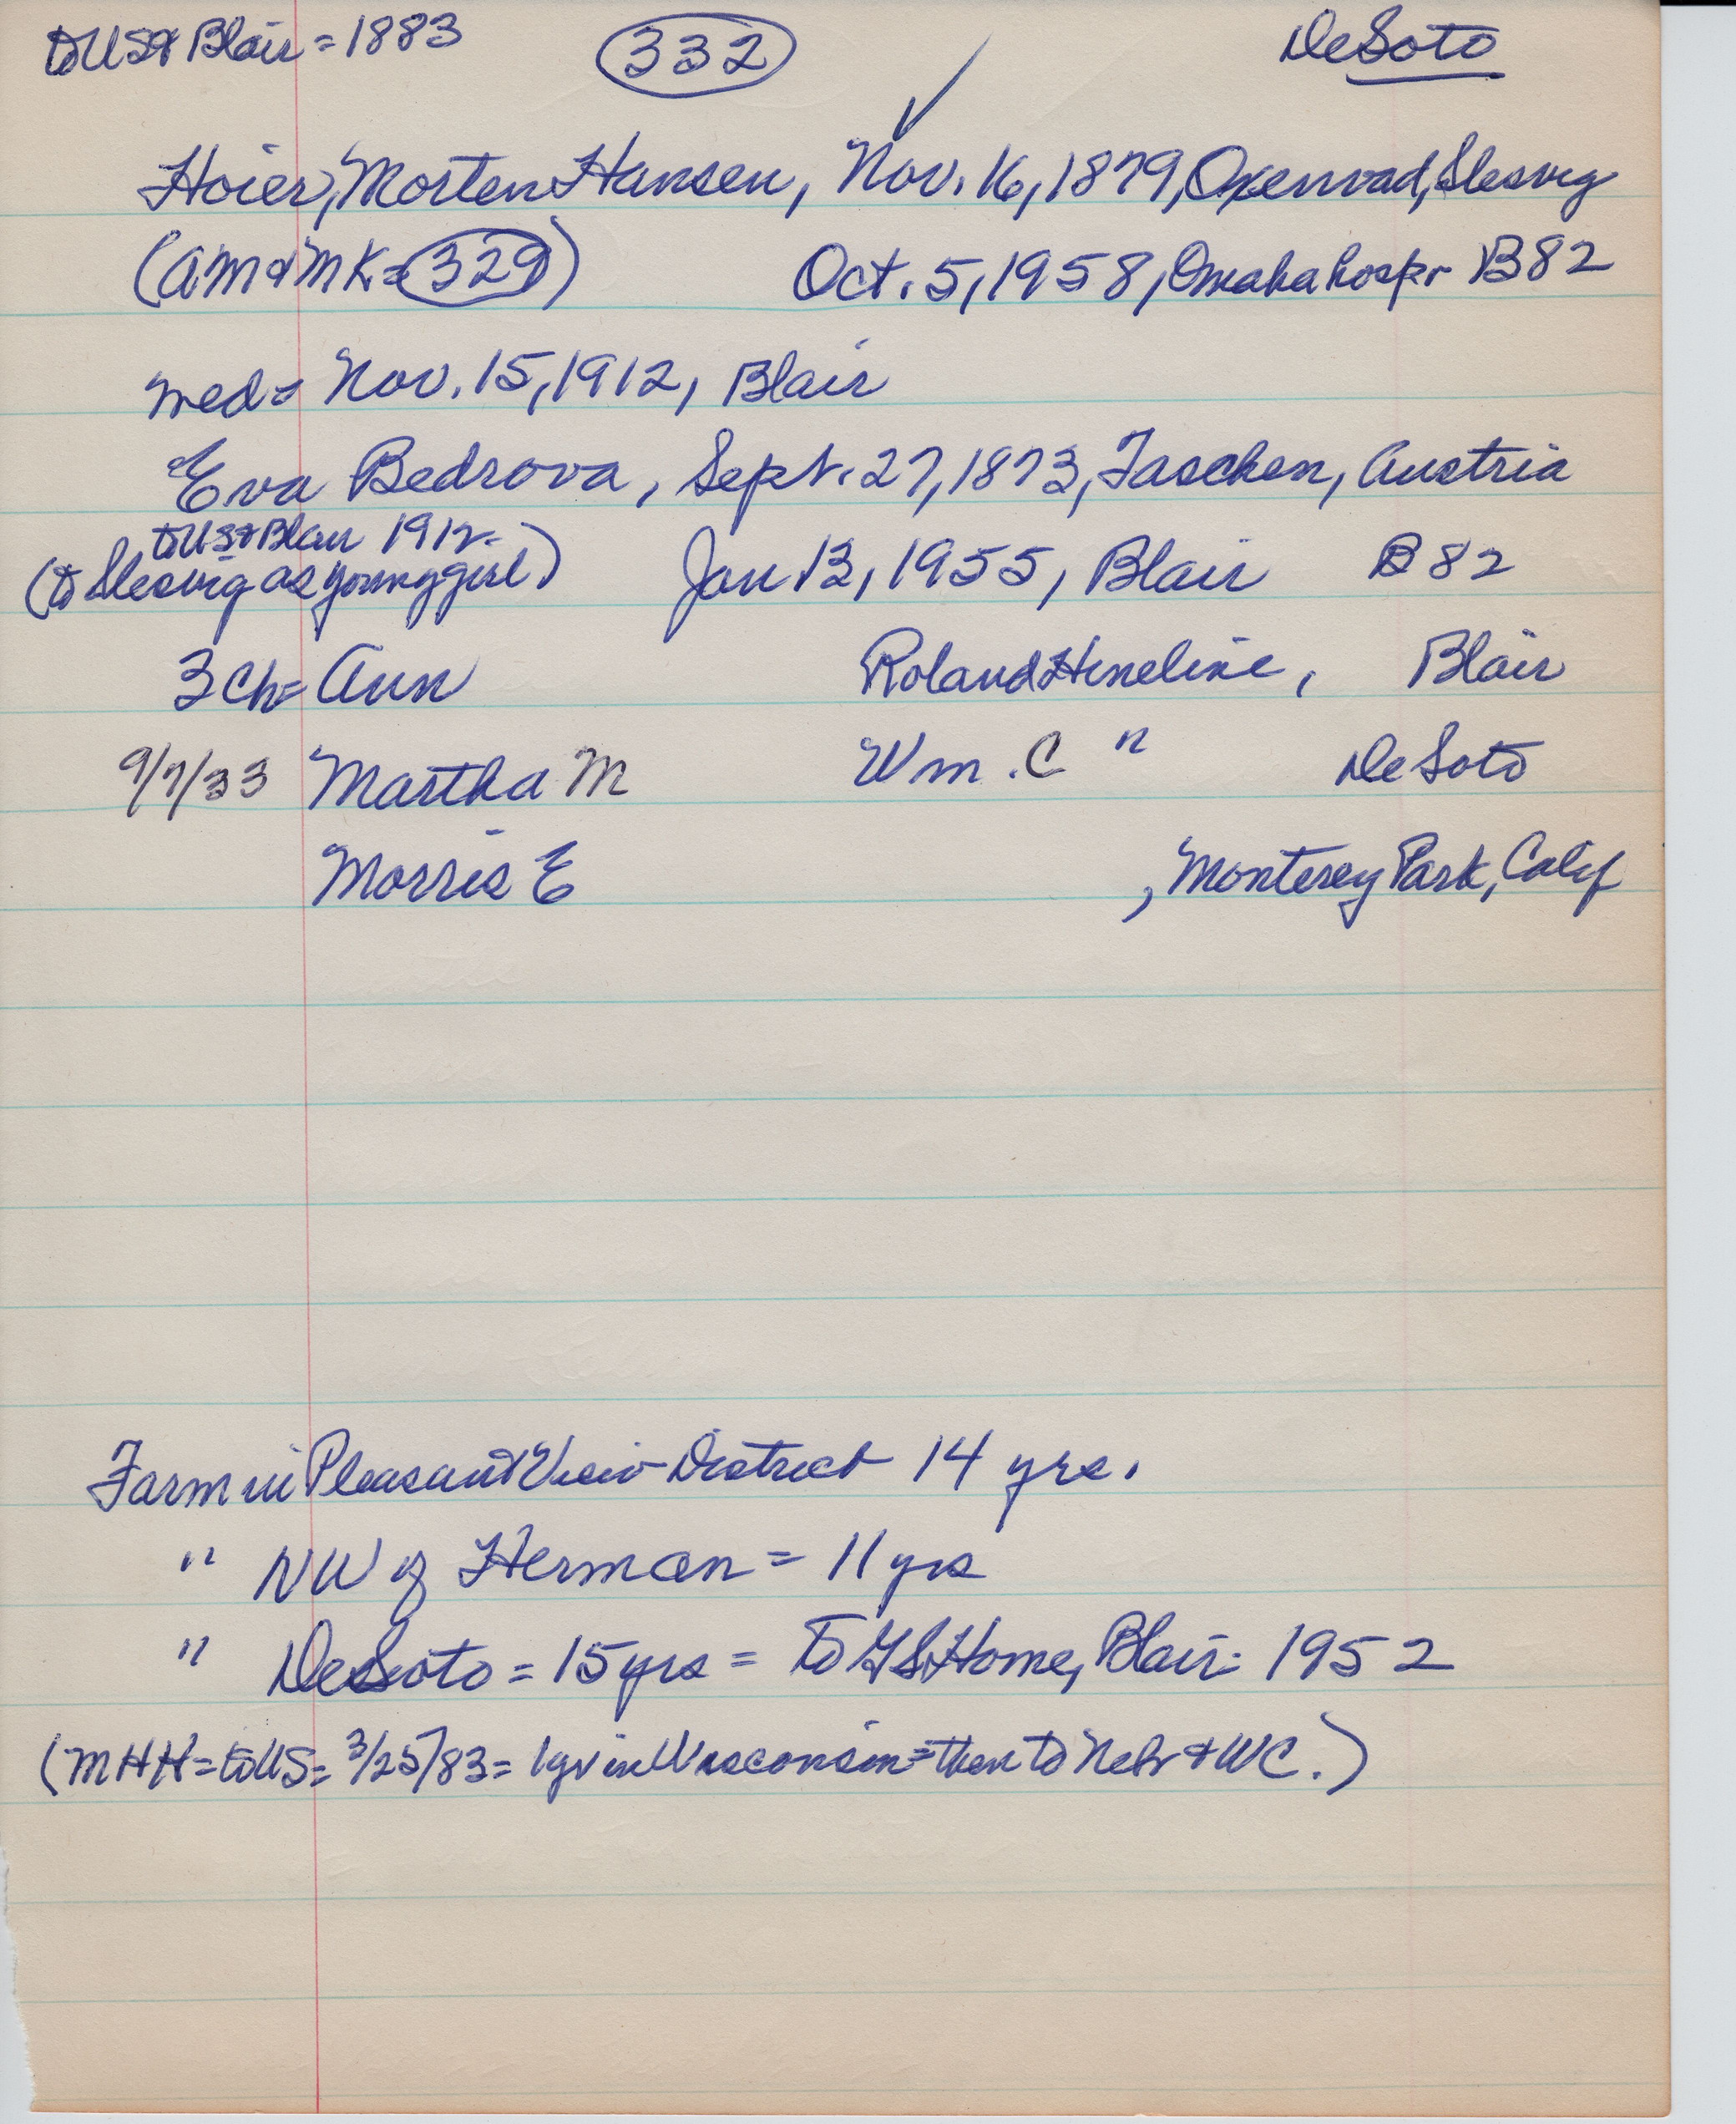 to US & Blair = 1883 332 DeSoto
Hoier, Morten Hansen, Nov. 16, 1879, Oxenvad, Slesvig
(AM & MK = 329) Oct. 5, 1958, Omaha hosp. B82
wed = Nov. 15, 1912, Blair
Eva Bedrova, Sept. 27, 1873, Taschen, Austria
to US & Blair 1912.
(to Slesvig as young girl) Jan 13, 1955, Blair B82
3 ch = Ann Roland Hineline, Blair
9/7/33 Martha M Wm. C " DeSoto
Morris E , Monterey Park, Calif
Farm in Pleasant View District 14 yrs.
" NW of Herman = 11 yrs
" DeSoto = 15 yrs = to GS Home, Blair - 1952
(MHH = to US = 3/25/83 = 1 yr in Wisconsin = then to Nebr & WC.)